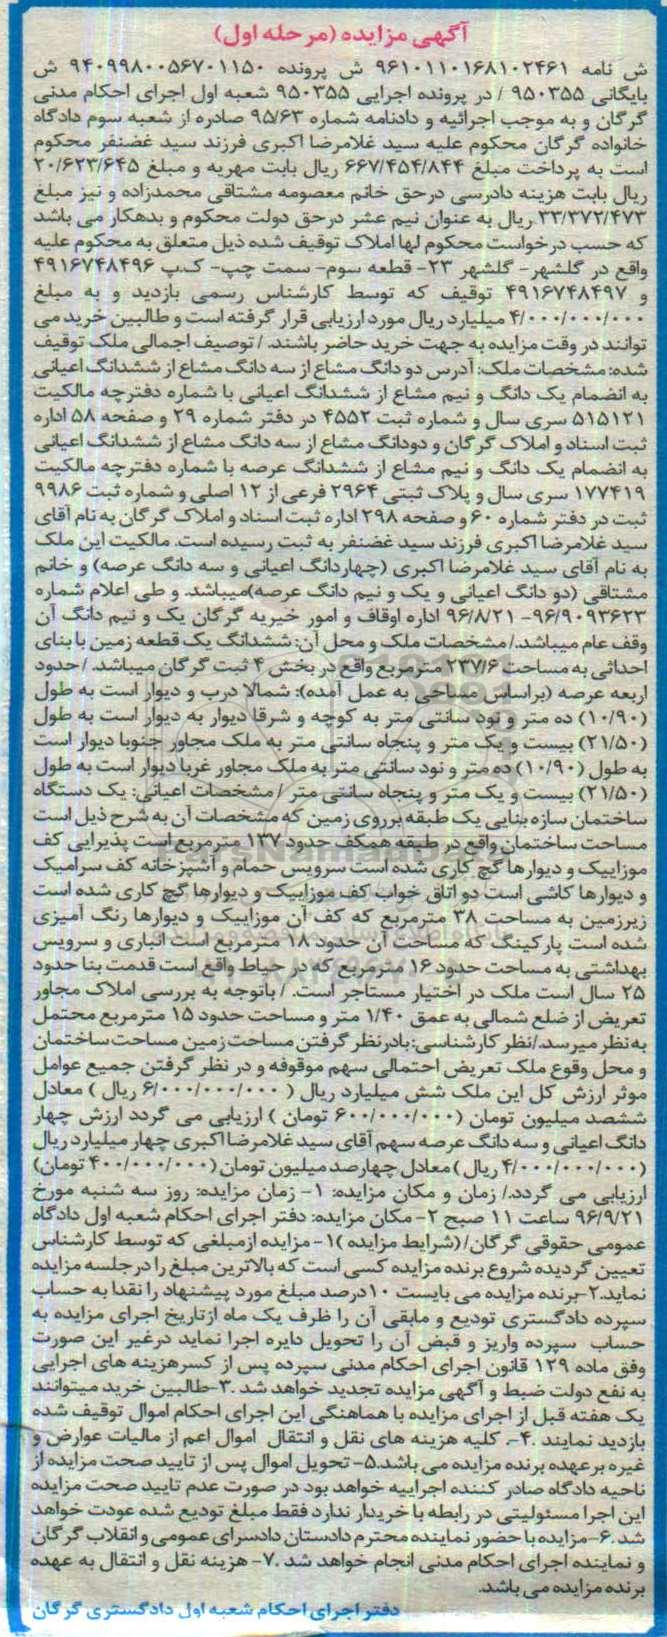 آگهی مزایده (مرحله اول)
ش نامه ۹۶۱۰۱۱۰۱۶۸۱۰۲۴۶۱ ش پرونده ۹۴۰۹۹۸۰۰۵۶۷۰۱۱۵۰ ش
بایگانی ۹۵۰۳۵۵ / در پرونده اجرایی ۹۵۰۳۵۵ شعبه اول اجرای احکام مدنی
گرگان و به موجب اجرائیه و دادنامه شماره ۹۵/۶۳ صادره از شعبه سوم دادگاه
خانواده گرگان محکوم علیه سید غلامرضا اکبری فرزند سید غضنفر محکوم
است به پرداخت مبلغ ۶۶۷/۴۵۴/۸۴۴ ریال بابت مهریه و مبلغ ۲۰/۶۲۳/۶۴۵
ریال بابت هزینه دادرسی درحق خانم معصومه مشتاقی محمدزاده و نیز مبلغ
۳۳/۳۷۲/۴۷۳ ریال به عنوان نیم عشر درحق دولت محکوم و بدهکار می باشد
که حسب درخواست محکوم لها املاک توقیف شده ذیل متعلق به محکوم علیه
واقع در گلشهر- گلشهر ۲۳- قطعه سوم- سمت چپ- ک.پ ۴۹۱۶۷۴۸۴۹۶
و ۴۹۱۶۷۴۸۴۹۷ توقیف که توسط کارشناس رسمی بازدید و به مبلغ
۴/۰۰۰/۰۰۰/۰۰۰ میلیارد ریال مورد ارزیابی قرار گرفته است و طالبین خرید می
توانند در وقت مزایده به جهت خرید حاضر باشند. / توصیف اجمالی ملک توقیف
شده: مشخصات ملک: آدرس دو دانگ مشاع از سه دانگ مشاع از ششدانگ اعیانی
به انضمام یک دانگ و نیم مشاع از ششدانگ اعیانی با شماره دفترچه مالکیت
۵۱۵۱۲۱ سری سال و شماره ثبت ۴۵۵۲ در دفتر شماره ۲۹ و صفحه ۵۸ اداره
ثبت اسناد و املاک گرگان و دودانگ مشاع از سه دانگ مشاع از ششدانگ اعیانی
به انضمام یک دانگ و نیم مشاع از ششدانگ عرصه با شماره دفترچه مالکیت
۱۷۷۴۱۹ سری سال و پلاک ثبتی ۲۹۶۴ فرعی از ۱۲ اصلی و شماره ثبت ۹۹۸۶
ثبت در دفتر شماره ۶۰ و صفحه ۲۹۸ اداره ثبت اسناد و املاک گرگان به نام آقای
سید غلامرضا اکبری فرزند سید غضنفر به ثبت رسیده است. مالکیت این ملک
به نام آقای سید غلامرضا اکبری (چهاردانگ اعیانی و سه دانگ عرصه) و خانم
مشتاقی (دو دانگ اعیانی و یک و نیم دانگ عرصه)میباشد. و طی اعلام شماره
۹۶/۹۰۹۳۶۲۳- ۹۶/۸/۲۱ اداره اوقاف و امور خیریه گرگان یک و نیم دانگ آن
وقف عام میباشد./ مشخصات ملک و محل آن: ششدانگ یک قطعه زمین با بنای
احداثی به مساحت ۲۳۷/۶ مترمربع واقع در بخش ۴ ثبت گرگان میباشد. /حدود
اربعه عرصه (براساس مساحی به عمل آمده): شمالا درب و دیوار است به طول
(۱۰/۹۰) ده متر و نود سانتی متر به کوچه و شرقا دیوار به دیوار است به طول
(۲۱/۵۰) بیست و یک متر و پنجاه سانتی متر به ملک مجاور جنوبا دیوار است
به طول (۱۰/۹۰) ده متر و نود سانتی متر به ملک مجاور غربا دیوار است به طول
(۲۱/۵۰) بیست و یک متر و پنجاه سانتی متر /مشخصات اعیانی: یک دستگاه
ساختمان سازه بنایی یک طبقه برروی زمین که مشخصات آن به شرح ذیل است
مساحت ساختمان واقع در طبقه همکف حدود ۱۳۷ مترمربع است پذیرایی کف
موزاییک و دیوارها گچ کاری شده است سرویس حمام و آشپزخانه کف سرامیک
و دیوارها کاشی است دو اتاق خواب کف موزاییک و دیوارها گچ کاری شده است
زیرزمین به مساحت ۳۸ مترمربع که کف آن موزاییک و دیوارها رنگ آمیزی
شده است پارکینگ که مساحت آن حدود ۱۸ مترمربع است انباری و سرویس
بهداشتی به مساحت حدود ۱۶ مترمربع که در حیاط واقع است قدمت بنا حدود
۲۵ سال است ملک در اختیار مستاجر است. / باتوجه به بررسی املاک مجاور
تعریض از ضلع شمالی به عمق ۱/۴۰ متر و مساحت حدود ۱۵ مترمربع محتمل
به نظر میرسد./نظر کارشناسی: بادرنظر گرفتن مساحت زمین مساحت ساختمان
و محل وقوع ملک تعریض احتمالی سهم موقوفه و در نظر گرفتن جمیع عوامل
موثر ارزش کل این ملک شش میلیارد ریال ( ۶/۰۰۰/۰۰۰/۰۰۰ ریال ) معادل
ششصد میلیون تومان (۶۰۰/۰۰۰/۰۰۰ تومان ) ارزیابی می گردد ارزش چهار
دانگ اعیانی و سه دانگ عرصه سهم آقای سید غلامرضا اکبری چهار میلیارد ریال
(۴/۰۰۰/۰۰۰/۰۰۰ ریال ) معادل چهارصد میلیون تومان (۴۰۰/۰۰۰/۰۰۰ تومان)
ارزیابی می گردد./ زمان و مکان مزایده: ۱- زمان مزایده: روز سه شنبه مورخ
۹۶/۹/۲۱ ساعت ۱۱ صبح ۲- مکان مزایده: دفتر اجرای احکام شعبه اول دادگاه
عمومی حقوقی گرگان/(شرایط مزایده )۱- مزایده ازمبلغی که توسط کارشناس
تعیین گردیده شروع برنده مزایده کسی است که بالاترین مبلغ را درجلسه مزایده
نماید.۲-برنده مزایده می بایست ۱۰درصد مبلغ مورد پیشنهاد را نقدا به حساب
سپرده دادگستری تودیع و مابقی آن را ظرف یک ماه ازتاریخ اجرای مزایده به
حساب سپرده واریز و قبض آن را تحویل دایره اجرا نماید درغیر این صورت
وفق ماده ۱۲۹ قانون اجرای احکام مدنی سپرده پس از کسرهزینه های اجرایی
به نفع دولت ضبط و آگهی مزایده تجدید خواهد شد .۳-طالبین خرید میتوانند
یک هفته قبل از اجرای مزایده با هماهنگی این اجرای احکام اموال توقیف شده
بازدید نمایند .۴-. کلیه هزینه های نقل و انتقال اموال اعم از مالیات عوارض و
غیره برعهده برنده مزایده می باشد.۵- تحویل اموال پس از تایید صحت مزایده از
ناحیه دادگاه صادر کننده اجراییه خواهد بود در صورت عدم تایید صحت مزایده
این اجرا مسئولیتی در رابطه با خریدار ندارد فقط مبلغ تودیع شده عودت خواهد
شد .۶-مزایده با حضور نماینده محترم دادستان دادسرای عمومی و انقلاب گرگان
و نماینده اجرای احکام مدنی انجام خواهد شد .۷- هزینه نقل و انتقال به عهده
برنده مزایده می باشد.
دفتر اجرای احکام شعبه اول دادگستری گرگان